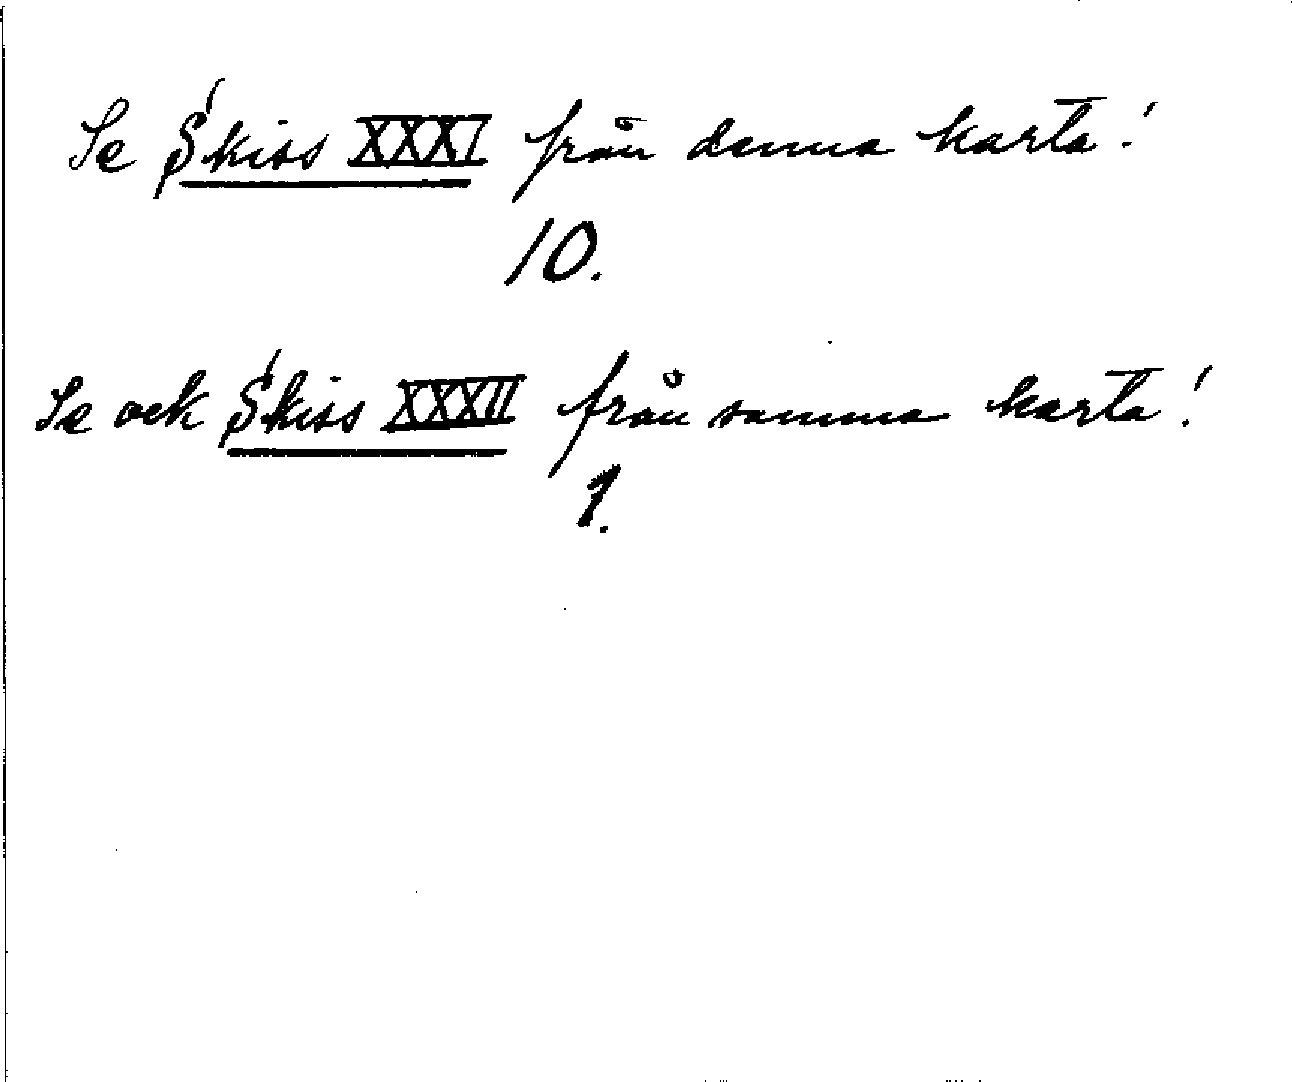 Se Skiss XXXI från denna karta!
10.
Se ock Skiss XXXII från samma karta!
1.